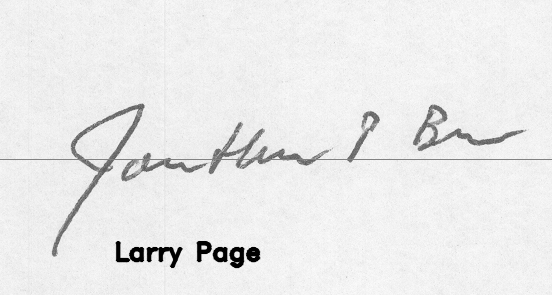 Jonathan P
Larry Page